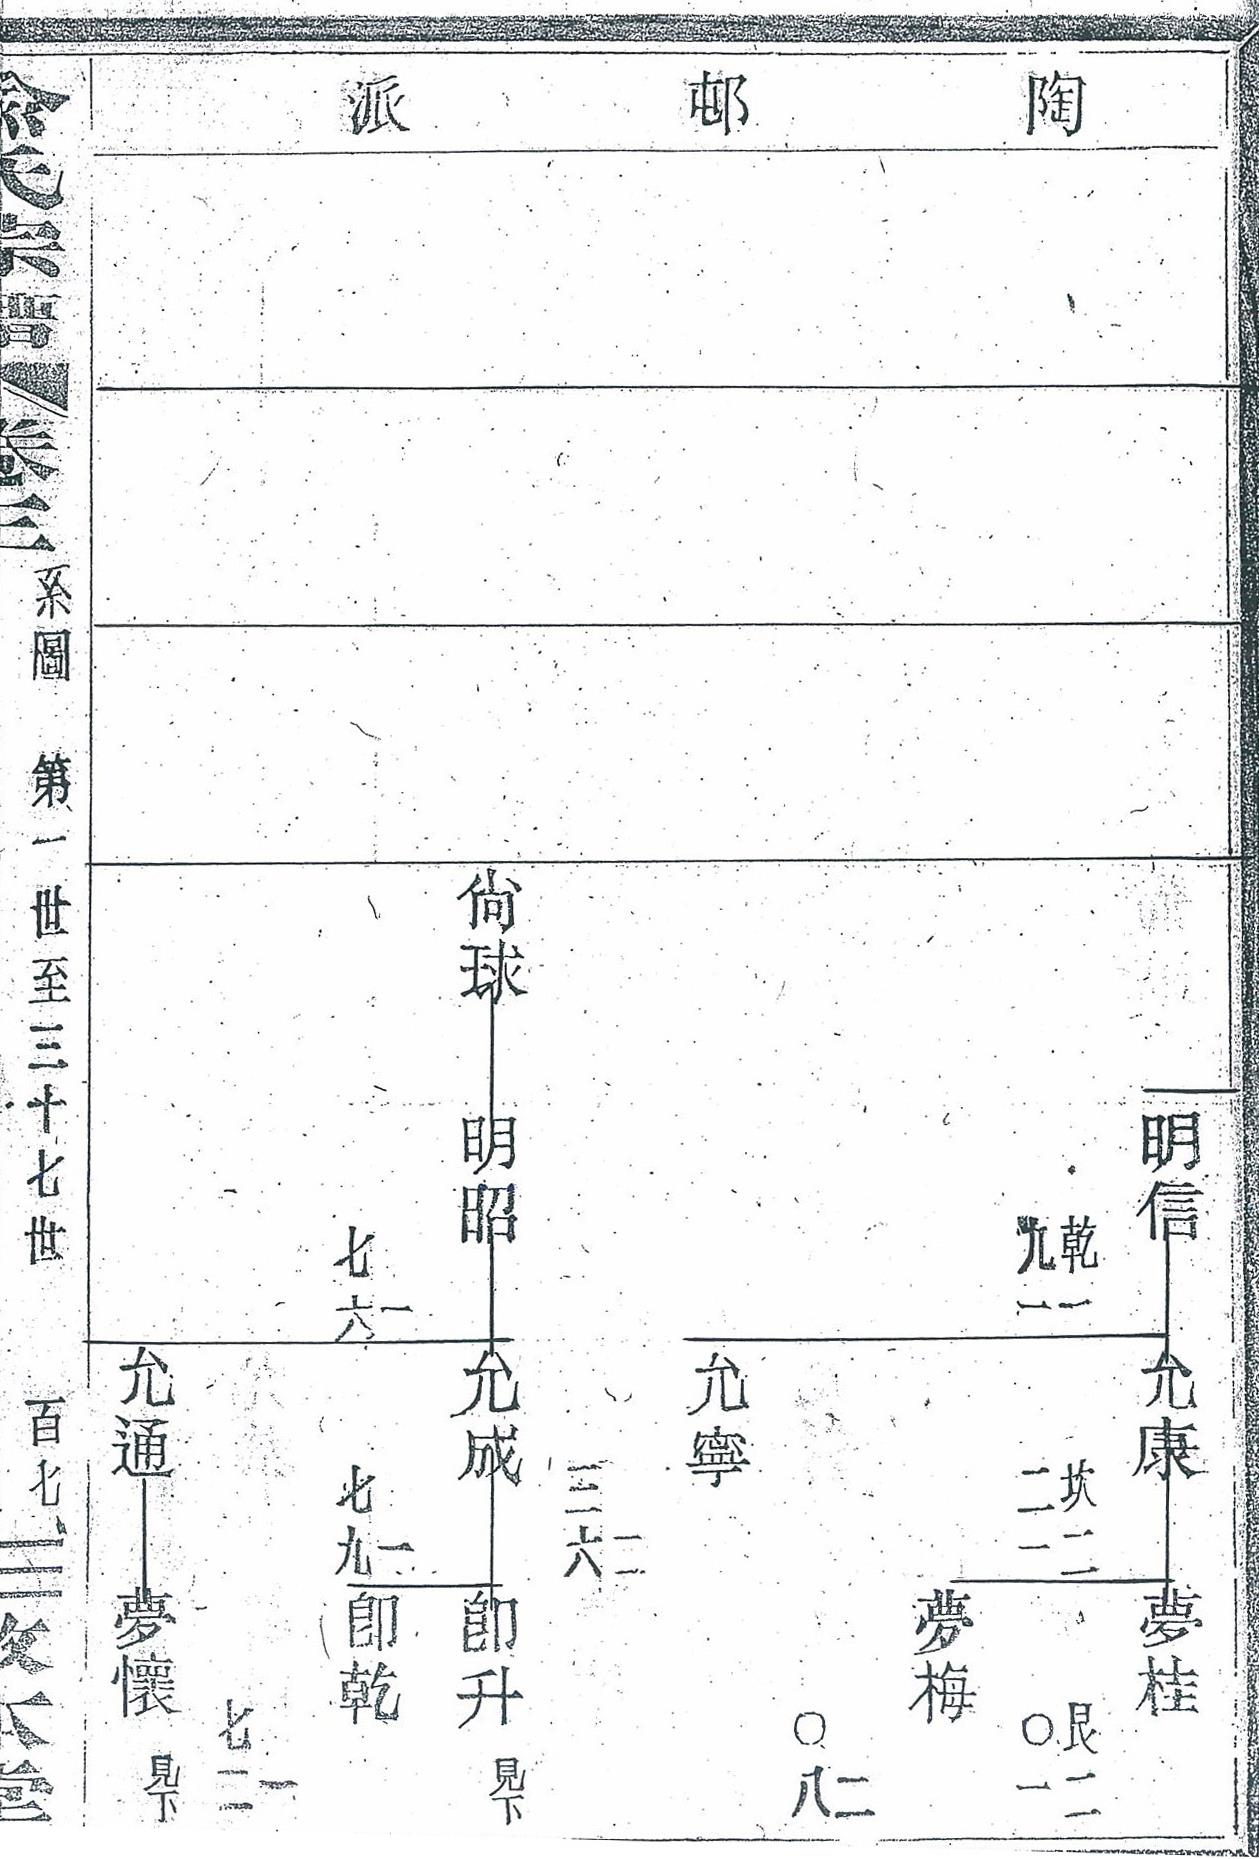 陶邨派
明信
允康
夢桂
乾一
九一
坎二
二一
艮二
〇一
夢梅
二
〇八
允寧
二二
三六
尙球
明昭
允成
卽升
見下
一
七六
一
七九
卽乾
一
七二
允通
夢懷
見下
俞氏宗譜 卷三 系圖 第一世至三十七世 百七 三